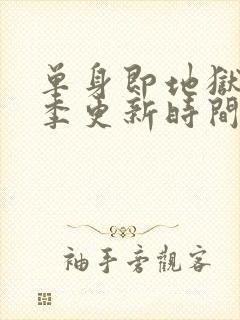 單身即地獄
季更新時間
袖手旁觀客